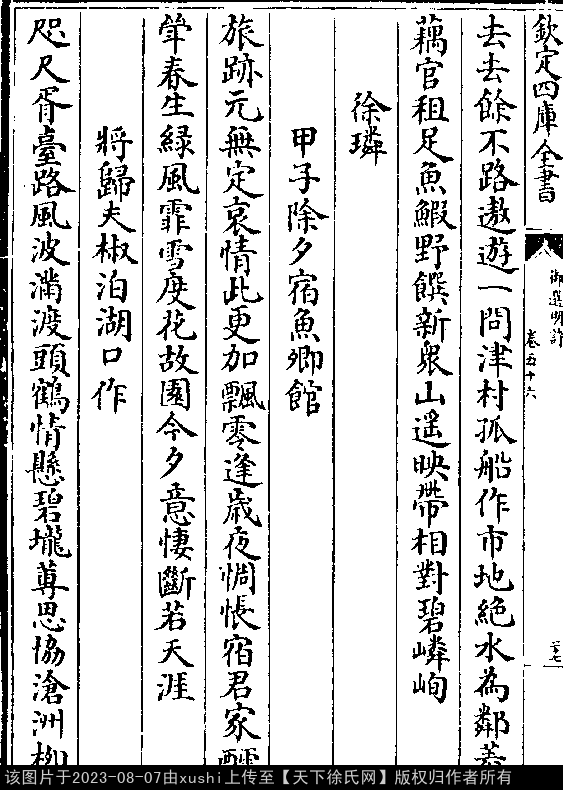 欽定四庫全書
御選明詩
卷五十六
三七
去去餘不路遨遊一問津村孤船作市地絶水為鄰蓋
藕官租足魚鰕野饌新衆山遥映帶相對碧嶙峋
徐璘
甲子除夕宿魚卿館
旅跡元無定哀情此更加飄零逢歲夜惆悵宿君家
斚春生緑風霏雪度花故園今夕意悽斷若天涯
將歸夫椒泊湖口作
咫尺胥臺路風波滿渡頭鶴情懸碧壠蓴思協滄洲柳
该图片于2023-08-07由xushi上传至【天下徐氏网】版权归作者所有